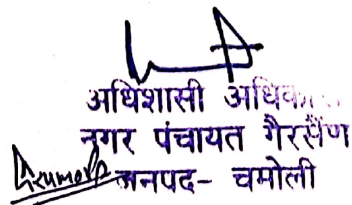 अधिशासी
नगर पंचायत गैरसैंण
जनपद- चमोली